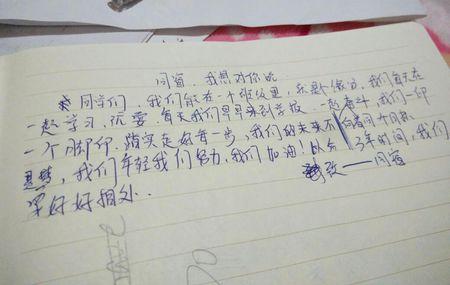 同窗，我想对你说
同学们，我们能在一个班级里，就是个缘分，我们每天在
一起学习，玩耍，每天我们早早来到学校，一起奋斗，我们一印
一个脚印，踏实走好每一步，我们的未来不
，我们年轻我们努力，我们加油！3年时间，我们
好好相处．
致——同窗